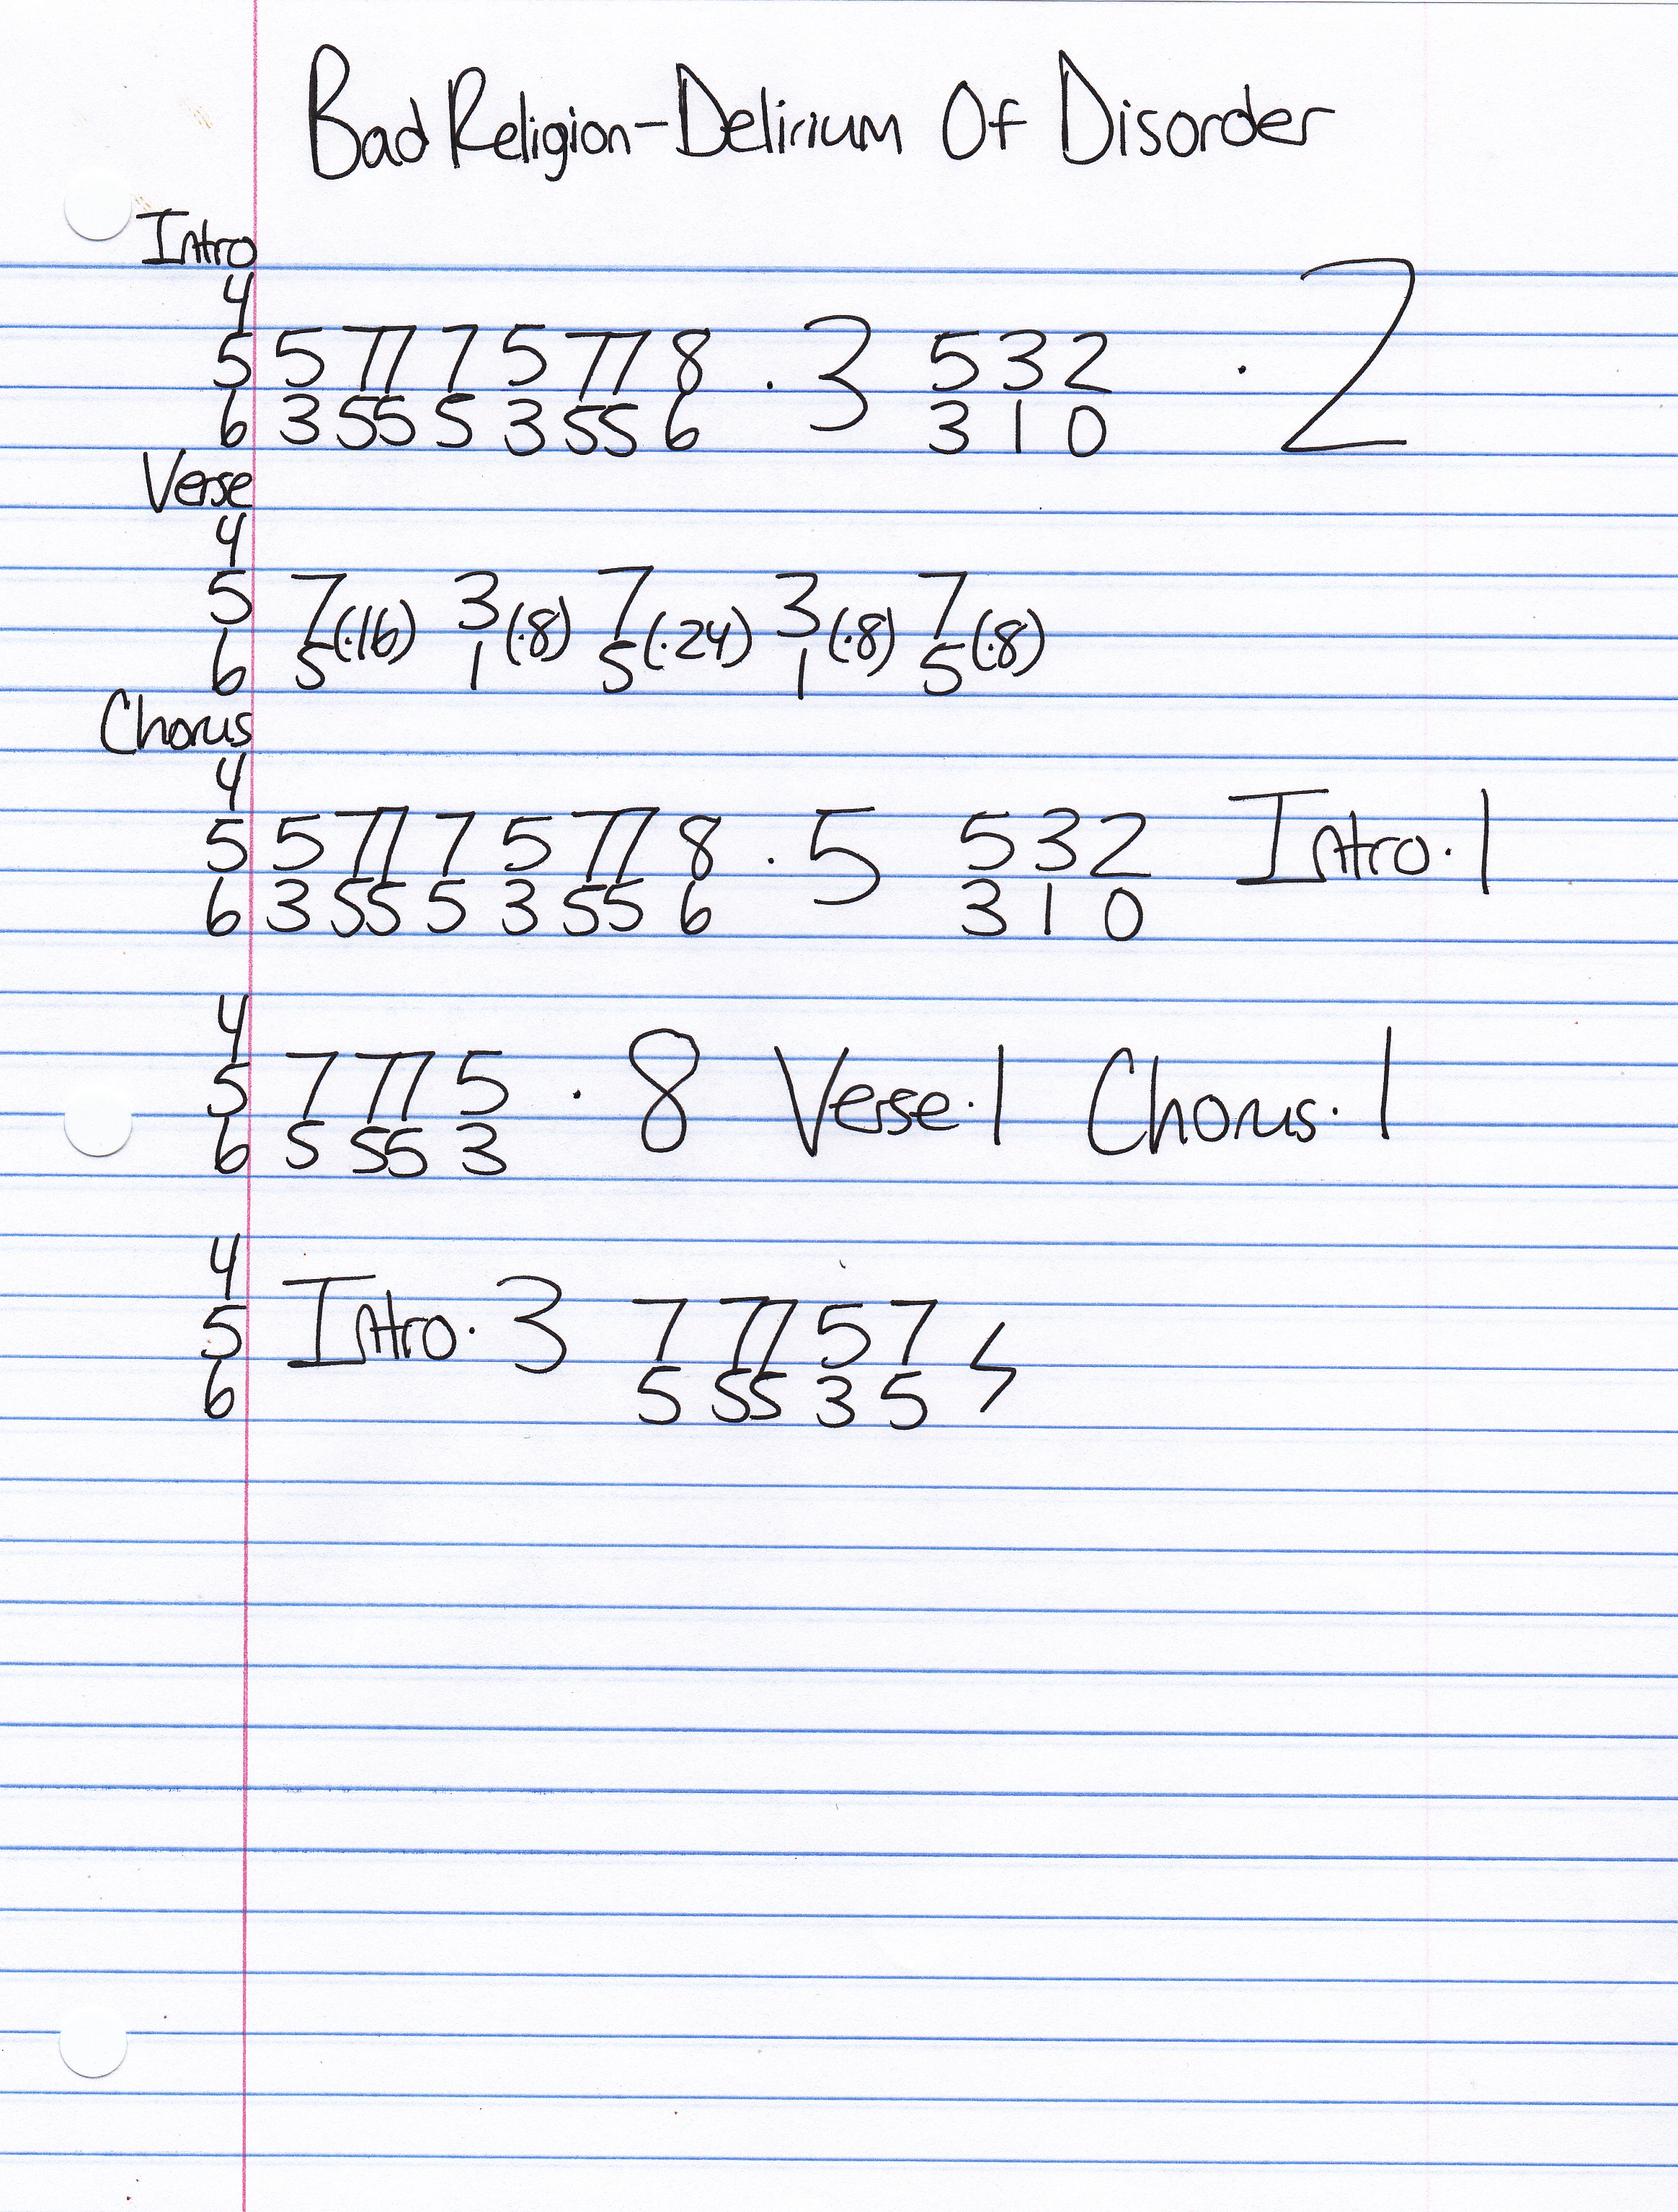 Bad Religion-Delirium Of Disorder
Intro
4
5 5 77 7 5 77 8 . 3 5 3 2 . 2
6 3 55 5 3 55 6 3 1 0
Verse
4
5 7(.16) 3(.8) 7(.24) 3(.8) 7(.8)
6 5 1 5 1 5
Chorus
4
5 5 77 7 5 77 8 . 5 5 3 2 Intro.1
6 3 55 5 3 55 6 3 1 0
4
5 7 77 5 . 8 Verse.1 Chorus.1
6 5 55 3
4
5 Intro.3 7 77 5 7
6 5 55 3 5